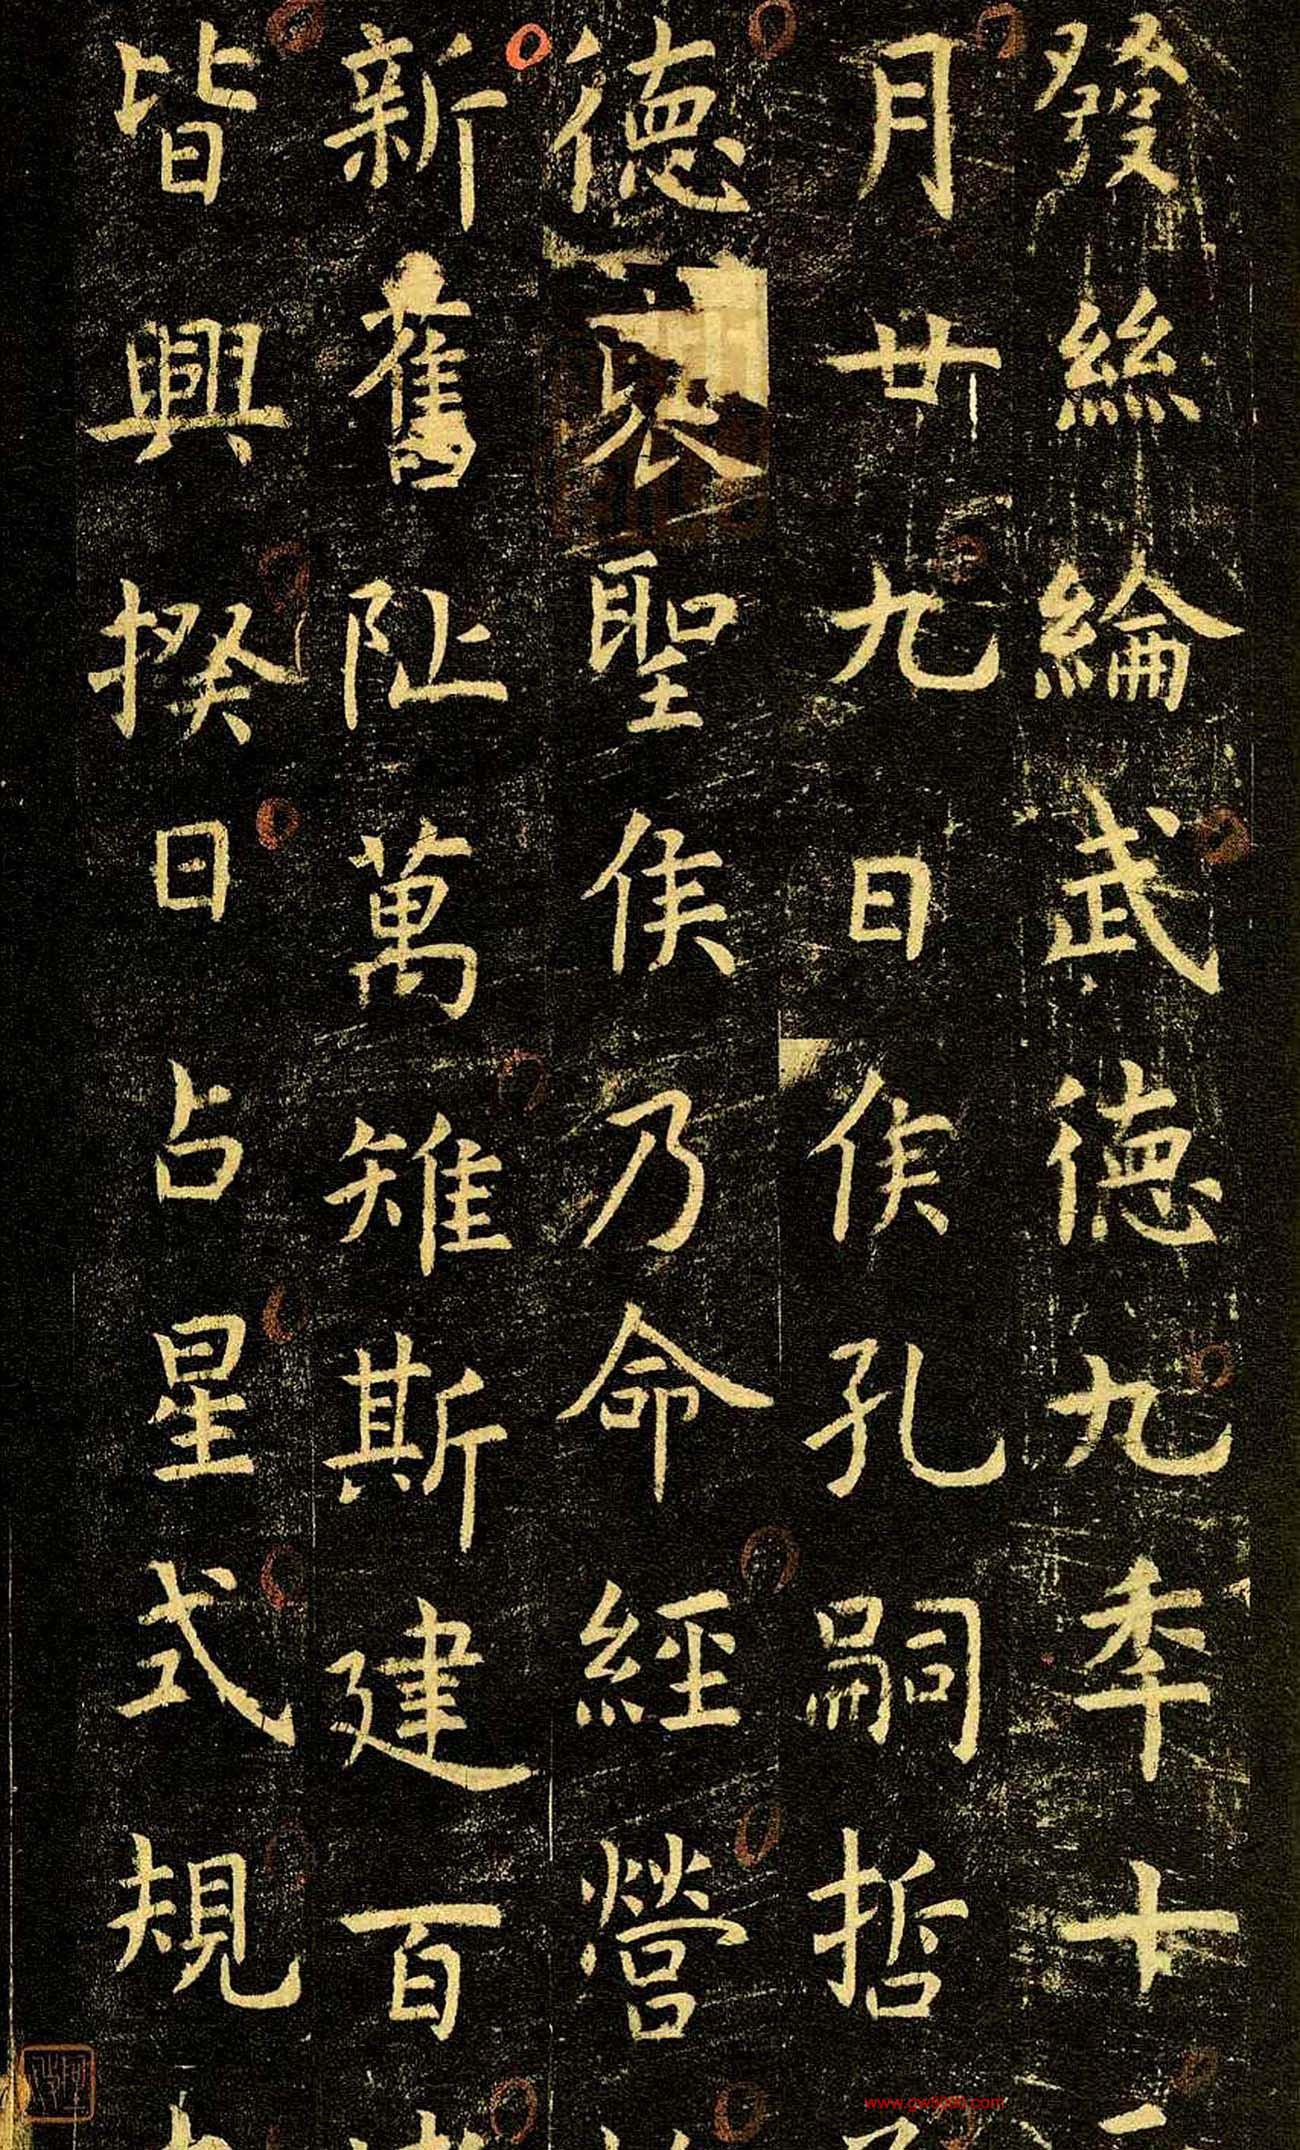 發絲綸武德九秊十
月廿九日侯孔嗣哲
德褒聖侯乃命經營
新舊阯萬雉斯建百
皆興揆日占星式規